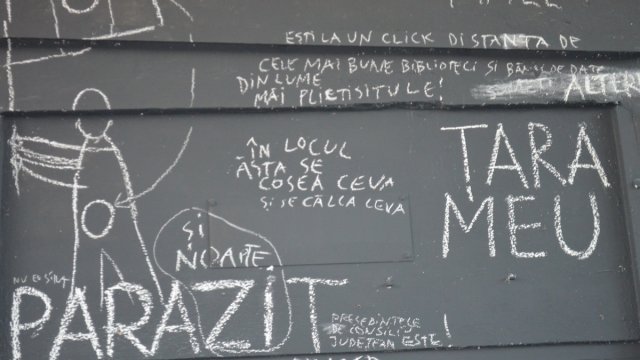 EȘTI LA UN CLICK DISTANȚĂ DE
CELE MAI BUNE BIBLIOTECI ȘI BĂNCI DE DATE
DIN LUME
MĂI PLICTISITULE!
ALTER
ÎN LOCUL
ĂSTA SE
COSEA CEVA
ȘI SE CĂLCA CEVA
ȚARA
MEU
ȘI
NOAPTE
NU E SÂRB
PARAZIT
PREȘEDINTELE
DE CONSILIU
JUDEȚEAN ESTE!